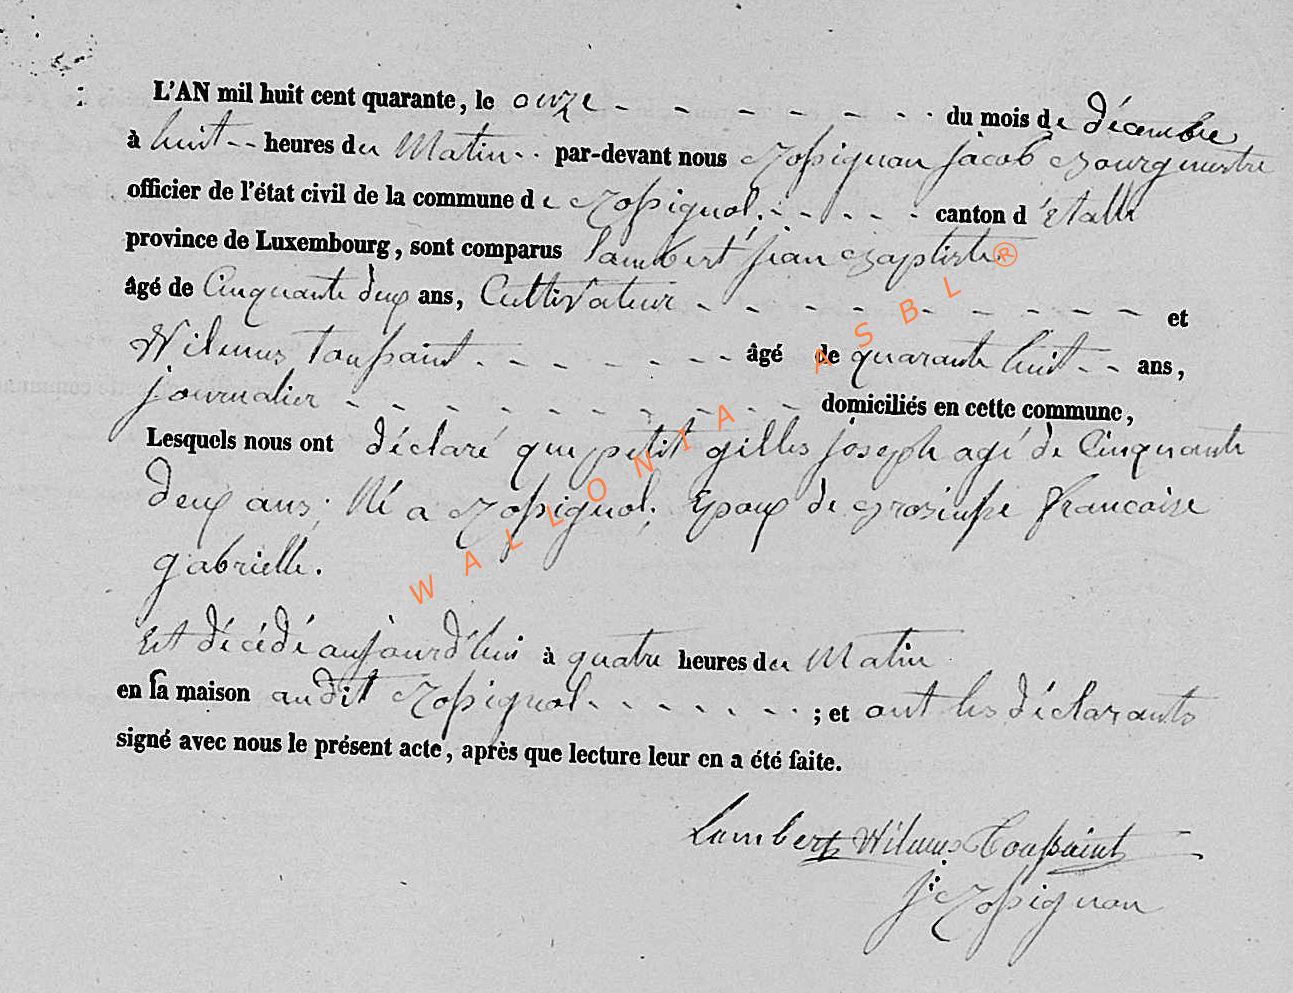 L'AN mil huit cent quarante, le onze - - - - - - - du mois de décembre
à huit -- heures du Matin -- par-devant nous Rossignon jacob Bourgmestre
officier de l'état civil de la commune de Rossignol. - - - - canton d'Etalle
province de Luxembourg, sont comparus lambert jean Baptiste
âgé de Cinquante deux ans, Cultivateur - - - - - - - - - et
Wilmus Toussaint - - - - - - - âgé de quarante huit -- ans,
journalier - - - - - - - - - - domiciliés en cette commune,
Lesquels nous ont déclaré que petit gilles joseph agé de Cinquante
deux ans; Né a Rossignol; Epoux de francoise
gabrielle.
Est décédé aujourd'hui à quatre heures du Matin
en sa maison audit Rossignol - - - - - - - ; et ont les déclarants
signé avec nous le présent acte, après que lecture leur en a été faite.
Lambert Wilmus Toussaint
J. Rossignon
WALLONIA ASBL ®